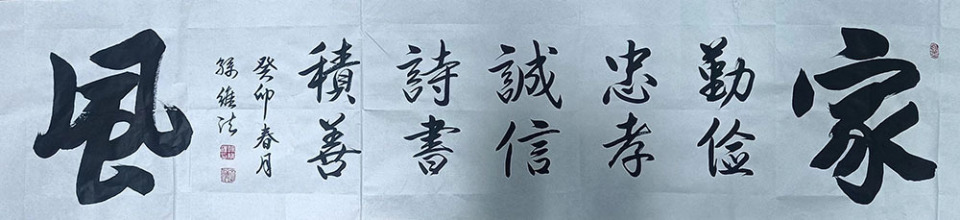 家
勤俭
忠孝
誠信
詩書
積善
癸卯春月
孫維法
風